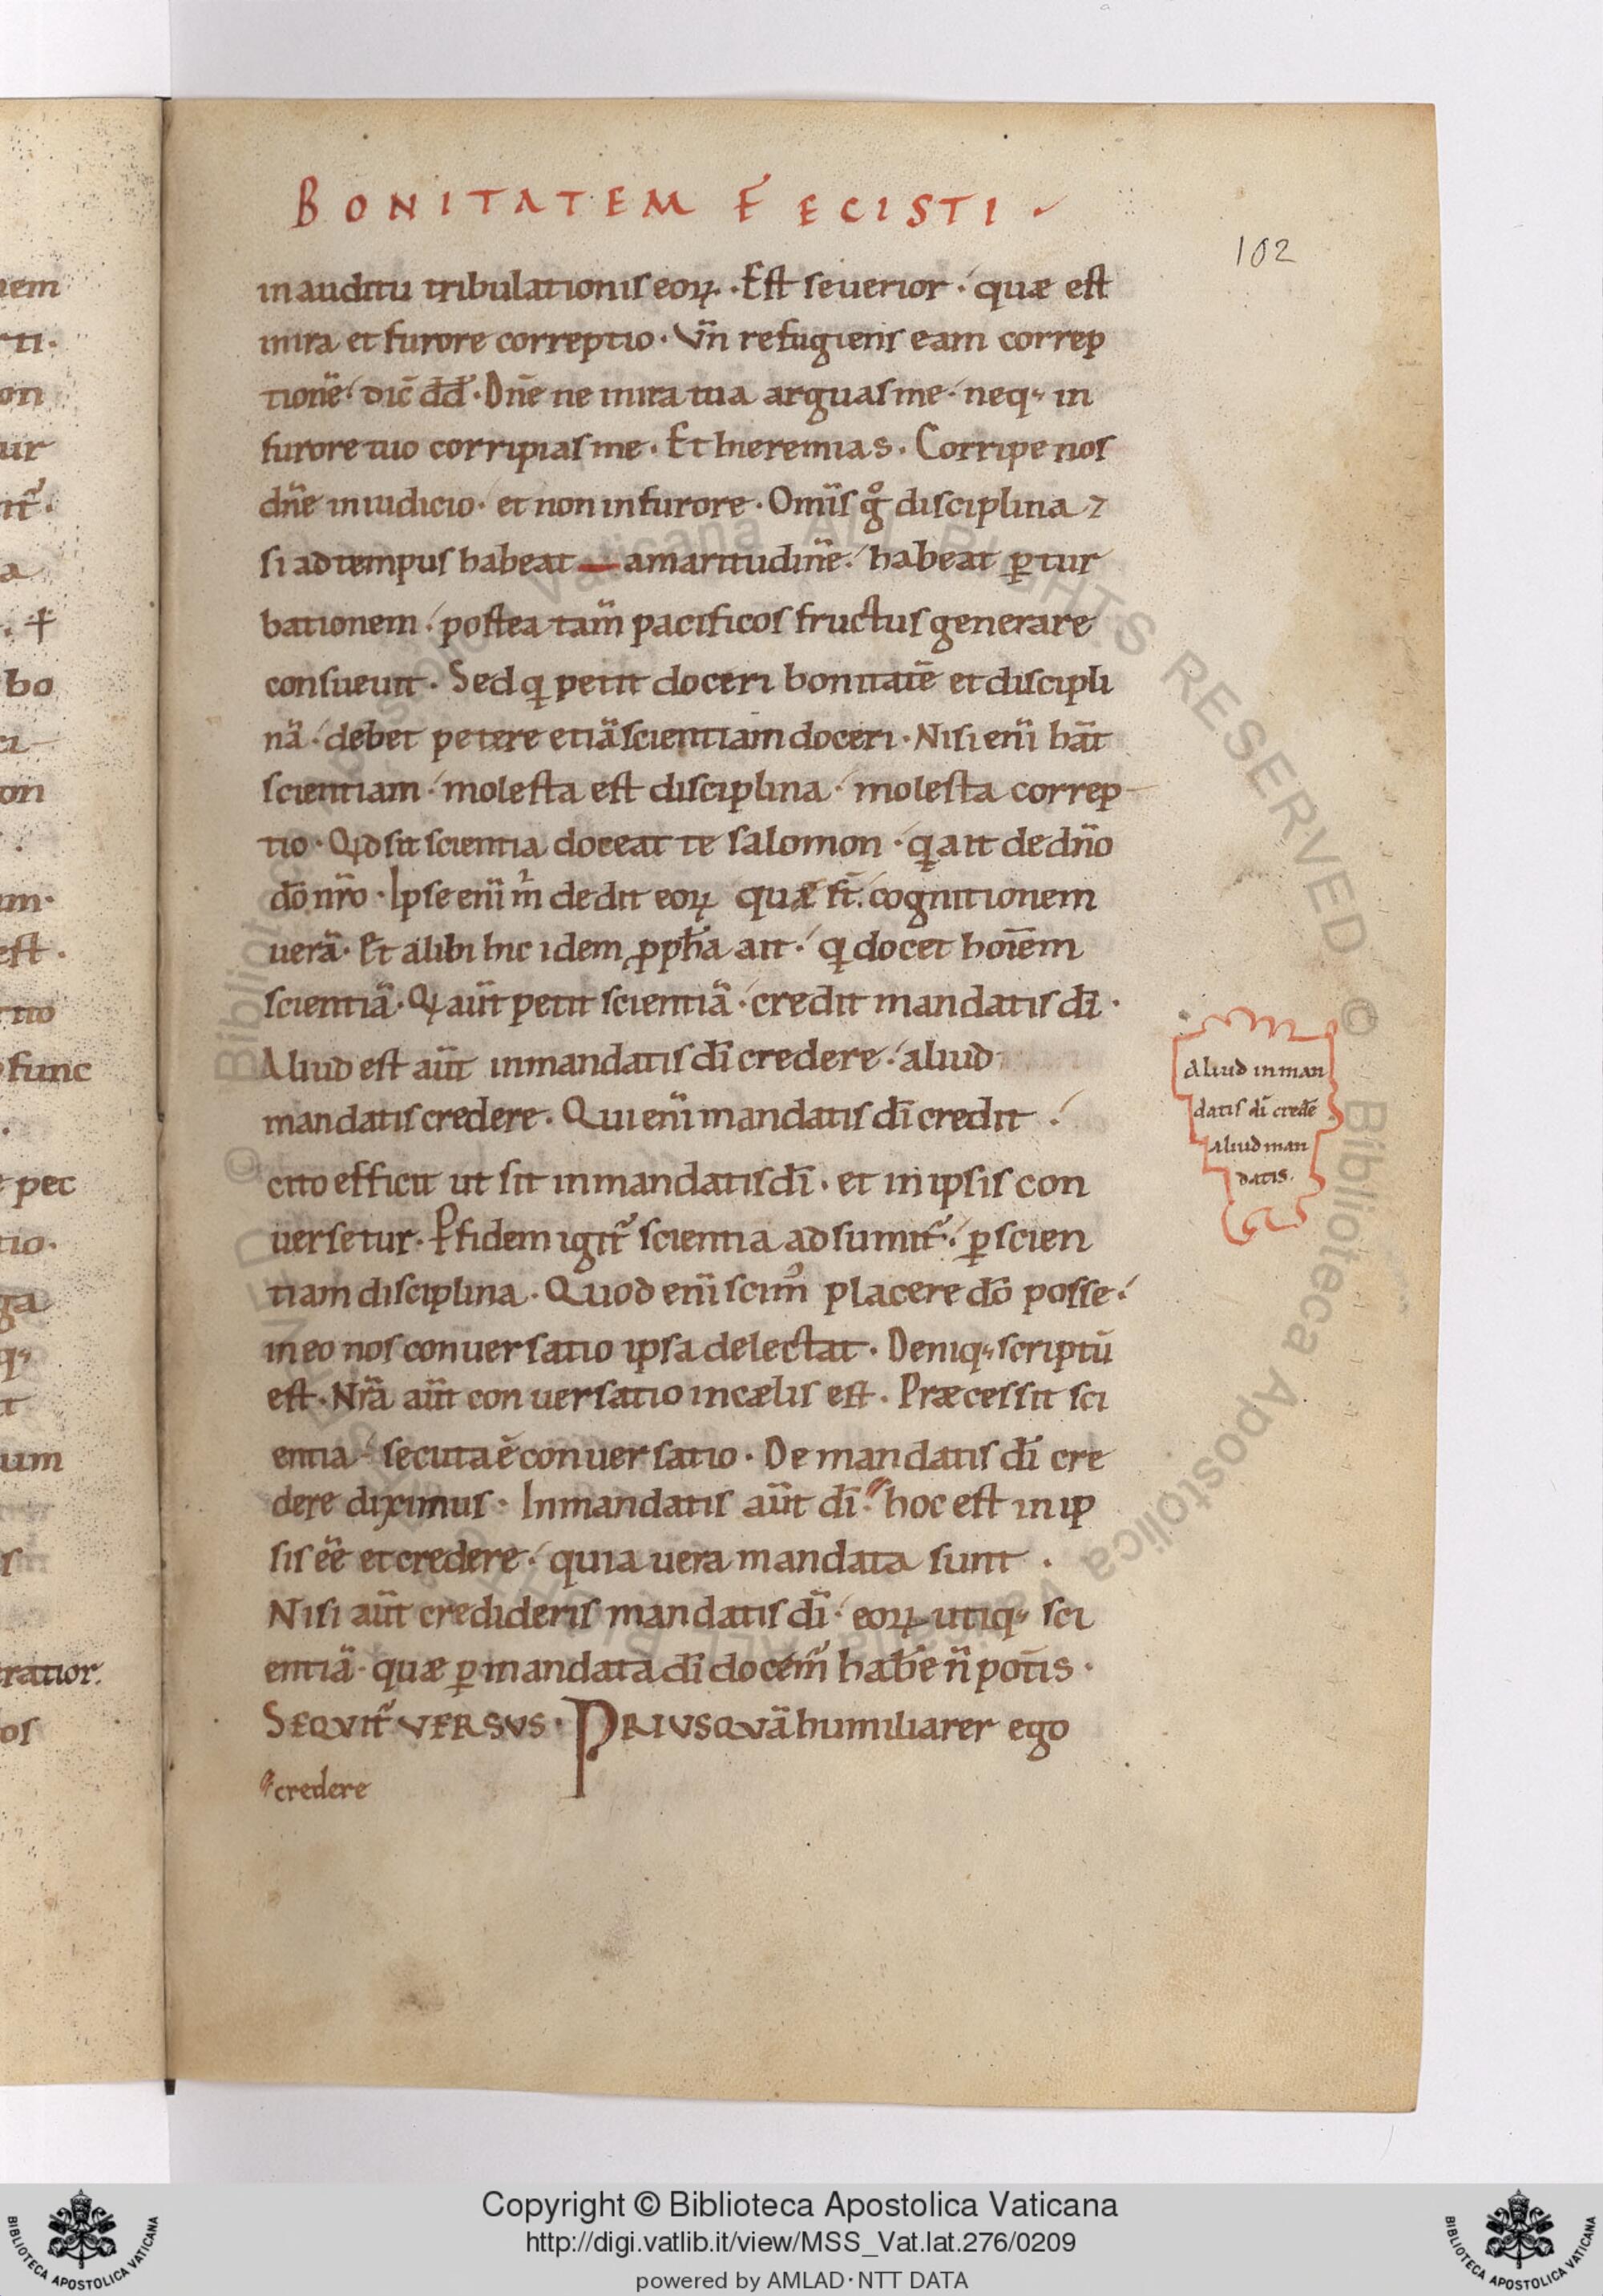 BONITATEM FECISTI.
102
in auditu tribulationis eoꝝ. Est seuerior. quæ est
in ira et furore correptio. Vn̄ refugiens eam correp
tionē. dic̄ dd̄. Dn̄e ne in ira tua arguas me. neq; in
furore tuo corripias me. Et hieremias. Corripe nos
dn̄e in iudicio. et non in furore. Omīs gͦ disciplina ⁊
si ad tempus habeat amaritudinē. habeat ꝑtur
bationem. postea tam̄ pacificos fructus generare
consueuit. Sed q petit doceri bonitatē et discipli
nā. debet petere etiā scientiam doceri. Nisi enī hāt
scientiam. molesta est disciplina. molesta correp
tio. Qd sit scientia doceat te salomon. q ait de dn̄o
dō nr̄o. Ipse enī m̄ dedit eoꝝ quæ st̄. cognitionem
uerā. Et alibi hic idem ꝓph̄a ait. q docet hoīem
scientiā. Q aūt petit scientiā. credit mandatis dī.
Aliud est aūt in mandatis dī credere. aliud
mandatis credere. Qui enī mandatis dī credit.
cito efficit ut sit in mandatis dī. et in ipsis con
uersetur. P fidem igit̄ scientia adsumit̄. ꝑ scien
tiam disciplina. Quod enī scim̄ placere dō posse.
in eo nos conuersatio ipsa delectat. Deniq; scriptū
est. Nr̄a aūt conuersatio in cælis est. Præcessit sci
entia. secuta ē conuersatio. De mandatis dī cre
dere diximus. In mandatis aūt dī. hoc est in ip
sis ēē et credere. quia uera mandata sunt.
Nisi aūt credideris mandatis dī. eoꝝ utiq; sci
entiā. quæ ꝑ mandata dī docem̄ habe n̄ potis.
SEQVIT̄ VERSVS. PRIVSQVĀ humiliarer ego
credere
Aliud in man
datis dī credē
Aliud man
datis.
© Biblioteca Apostolica Vaticana ALL RIGHTS RESERVED
Copyright © Biblioteca Apostolica Vaticana
http://digi.vatlib.it/view/MSS_Vat.lat.276/0209
powered by AMLAD·NTT DATA
BIBLIOTECA APOSTOLICA VATICANA
BIBLIOTECA APOSTOLICA VATICANA